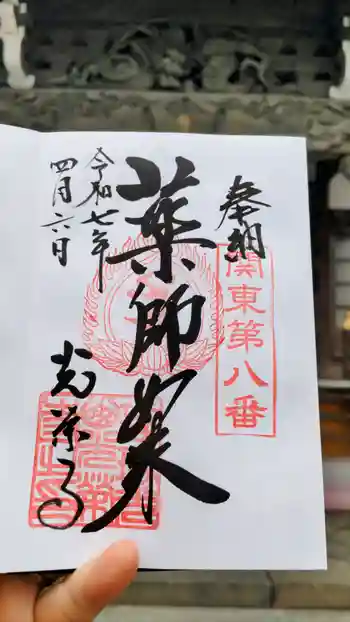 奉納
関東第八番
薬師如来
令和七年
四月六日
光栄寺